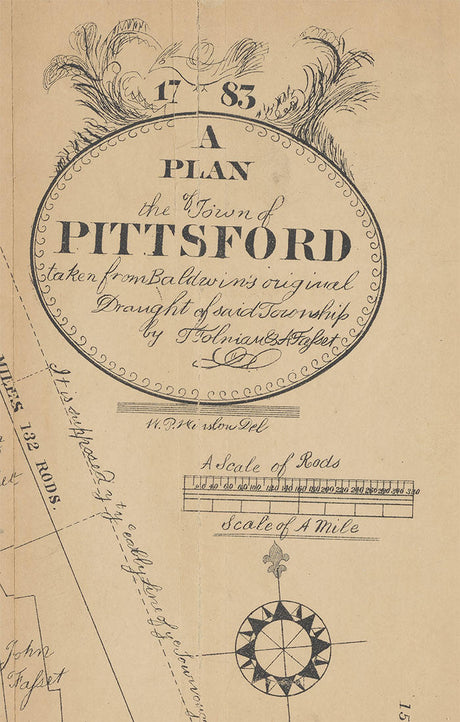 1783
A
PLAN
of
the Town of
PITTSFORD
taken from Baldwin's original
Draught of said Township
by T Folnian & A Fasset
W. P. Winslow Del
A Scale of Rods
0 40 60 80 100 120 140 160 180 200 220 240 260 280 300 320
Scale of A Mile
MILES 132 RODS.
It is supposed yt ye eastly Line of ye
John
Fasset
15